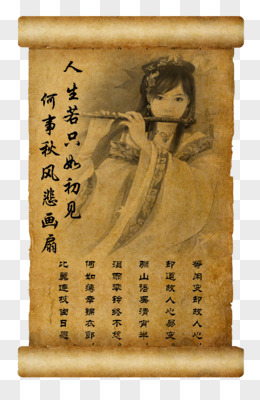 人生若只如初见
何事秋风悲画扇
等闲变却故人心，
却道故人心易变。
骊山语罢清宵半，
泪雨零铃终不怨。
何如薄幸锦衣郎，
比翼连枝当日愿。